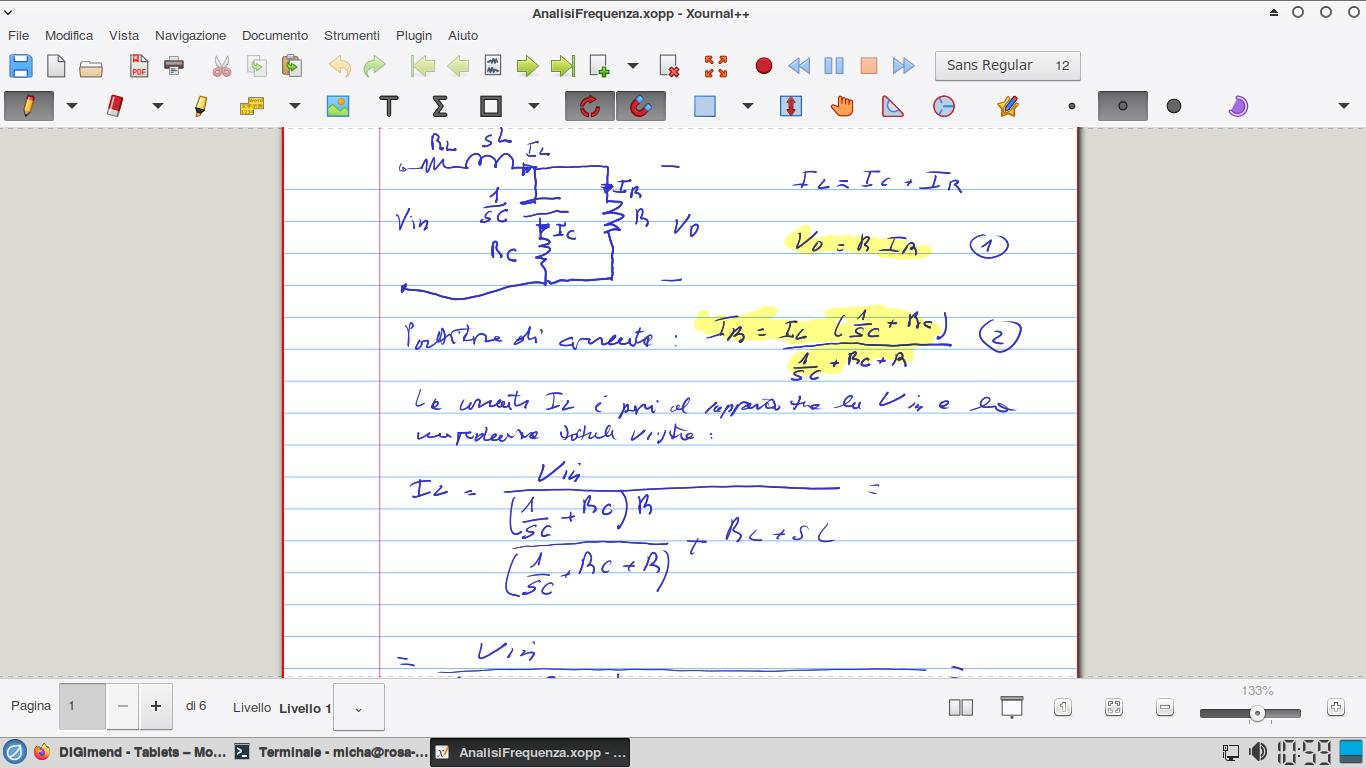 AnalisiFrequenza.xopp - Xournal++
File Modifica Vista Navigazione Documento Strumenti Plugin Aiuto
Sans Regular 12
RL sL IL
1/sC
IR
Vin IC R Vo
RC
IL = IC + IR
Vo = R IR ①
Partitore di corrente : IR = IL (1/sC + RC) / (1/sC + RC + R) ②
La corrente IL è pari al rapporto tra la Vin e la
impedenza totale vista :
IL = Vin / ((1/sC + RC) R / (1/sC + RC + R) + RL + sL) =
= Vin =
Pagina 1 di 6 Livello Livello 1 133%
DIGImend - Tablets – Mo... Terminale - micha@rosa-... AnalisiFrequenza.xopp - ... 10:59